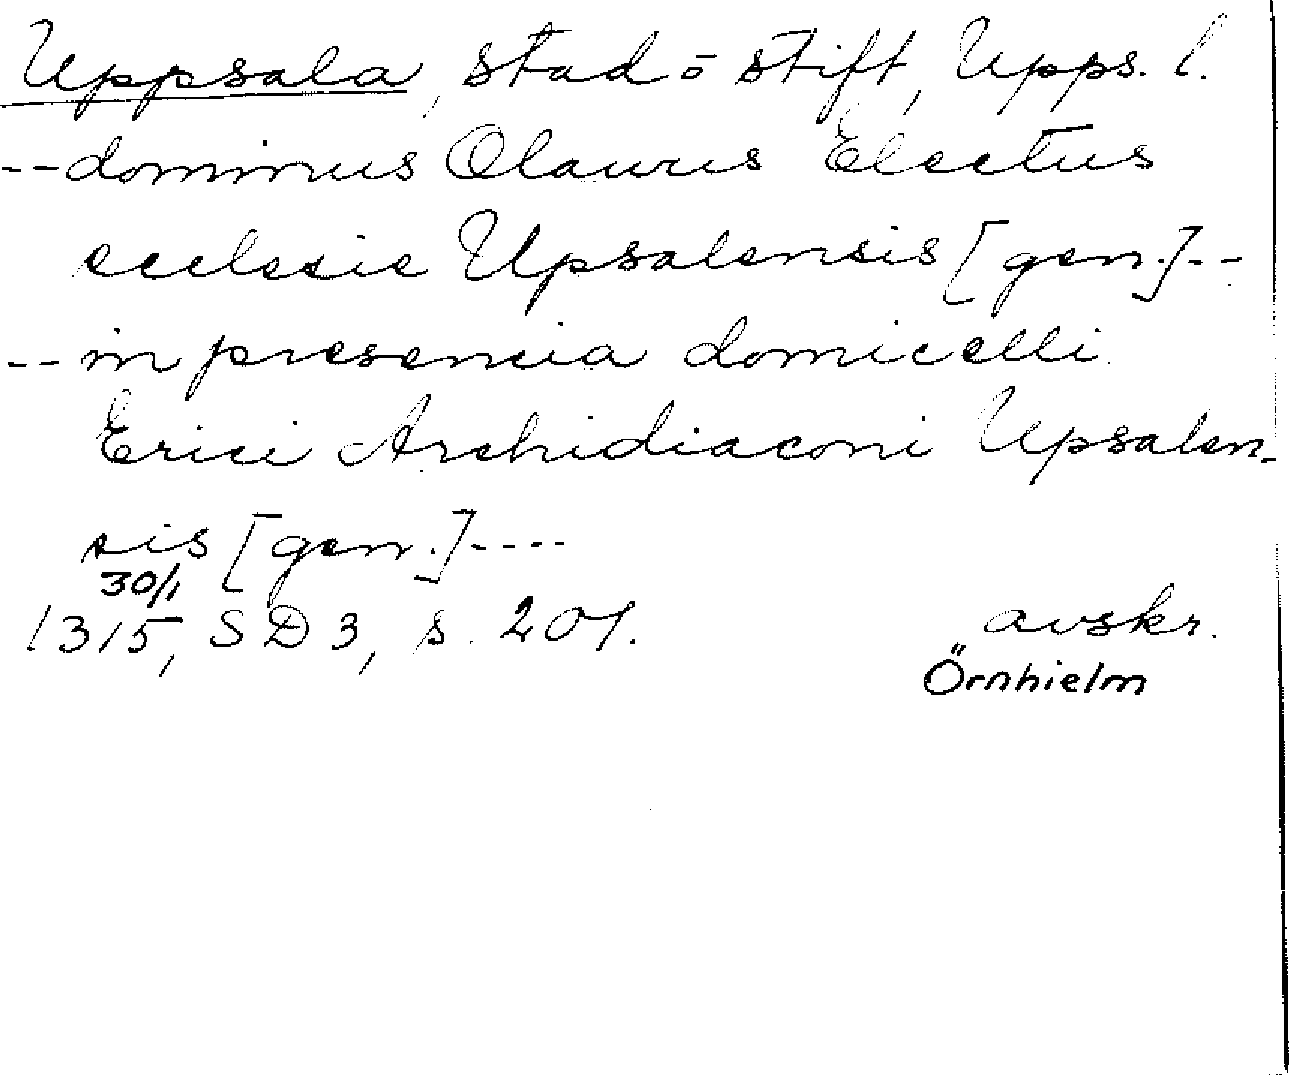 Uppsala, stad o stift, Upps. l.
-- dominus Olauus Electus
ecclesie Upsalensis [gen.] --
-- in presencia domicelli
Erici Archidiaconi Upsalen-
sis [gen.] ----
30/1
1315, SD 3, s. 201. avskr.
Örnhielm